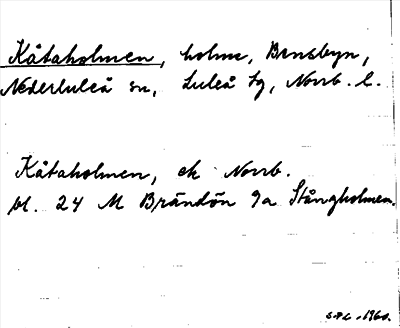 Kåtaholmen, holme, Bensbyn,
Nederluleå sn, Luleå tg, Norrb. l.
Kåtaholmen, ek Norrb.
bl. 24 M Brändön 9a Stångholmen.
S.P.L. 1960.